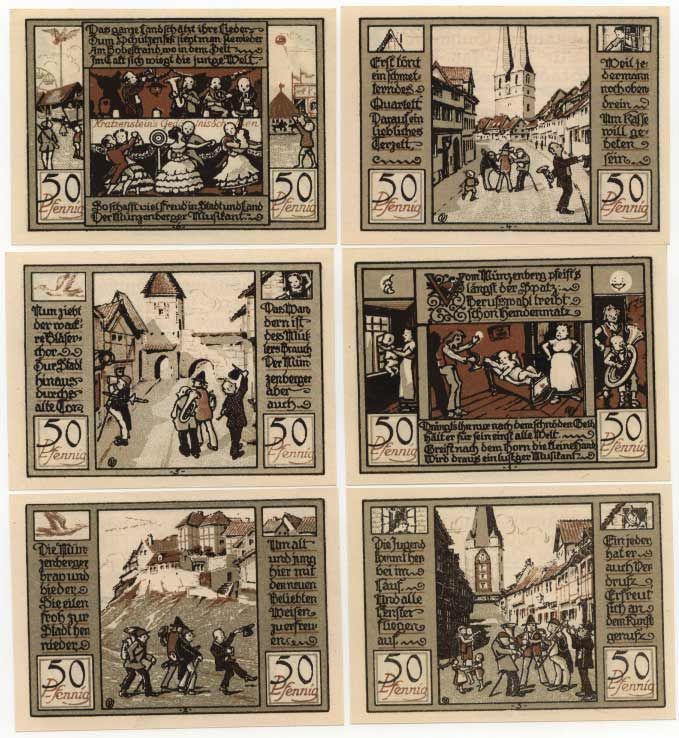 Das ganze Land schätzt ihre Lieder
Zum Schützenfest sieht man sie wieder
Am Bodestrand, wo in dem Zelt
Im Takt sich wiegt die junge Welt.
Kratzenstein's
50
Pfennig
50
Pfennig
So schafft viel Freud in Stadt und Land
Der Münzenberger Musikant
-6-
Erst tönt
ein schmet-
terndes
Quartett
Daraus ein
liebliches
Terzett
Weil je-
dermann
noch oben
drein
Um Kasse
will ge-
beten
sein
50
Pfennig
50
Pfennig
-4-
Nun zieht
der wack-
re Bläser-
chor
Zur Stadt
hinaus
durchs
alte Tor
Das Wan-
dern ist
des Mül-
lers Brauch
Der Mün-
zenberger
aber
auch
50
Pfennig
50
Pfennig
-5-
Vom Münzenberg pfeift's
längst der Spatz
Berufswahl treibt
schon Hendenmatz
50
Pfennig
50
Pfennig
Drängts ihr nur nach dem schnöden Geld
Hält er für sein einst alle Welt
Greift nach dem Horn die kleine Hand
Wird draus ein lust'ger Musikant
-1-
Die Mün-
zenberger
brav und
bieder
Sie eilen
froh zur
Stadt her-
nieder
Um alt
und jung
hier mit
den neuen
Beliebten
Weisen
zu erfreu-
en
50
Pfennig
50
Pfennig
-2-
Die Jugend
kommt her
bei im
Lauf
Und alle
Fenster
fliegen
auf
Ein jeder
hat er
auch Ver
druß
Erfreut
sich an
dem Kunst
genuß
50
Pfennig
50
Pfennig
-3-